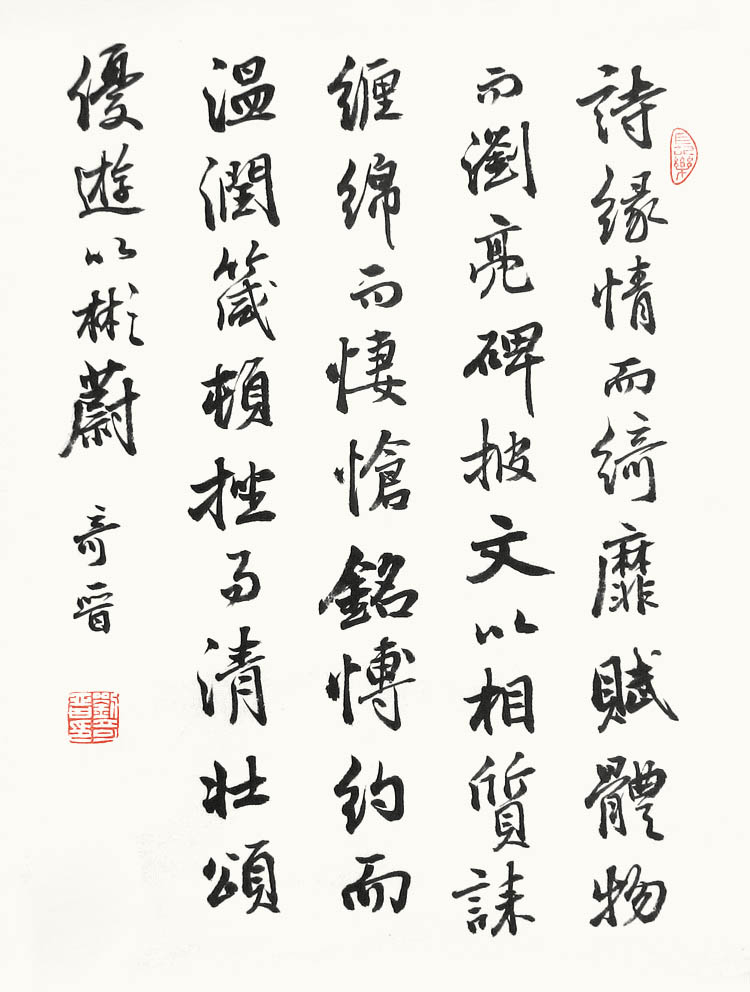 長樂
詩緣情而綺靡賦體物
而瀏亮碑披文以相質誄
纏綿而悽愴銘愽約而
温潤箴頓挫而清壯頌
優遊以彬蔚 奇晋
劉奇晋印